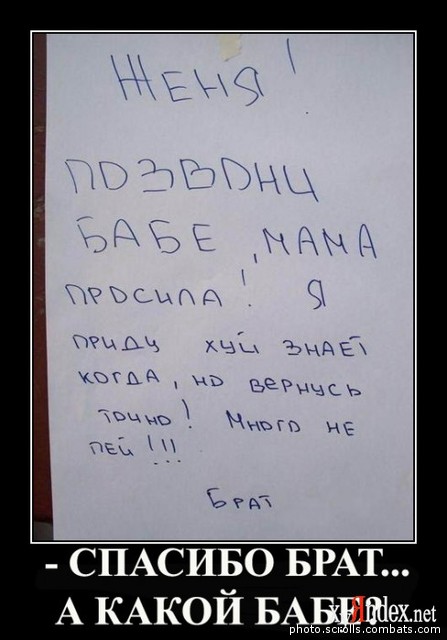 ЖЕНЯ!
ПОЗВОНИ
БАБЕ, МАМА
ПРОСИЛА! Я
ПРИДУ ХУЙ ЗНАЕТ
КОГДА, НО ВЕРНУСЬ
ТОЧНО! МНОГО НЕ
ПЕЙ!!!
БРАТ
- СПАСИБО БРАТ...
А КАКОЙ БАБЕ?
photo.scrolls.combats.com